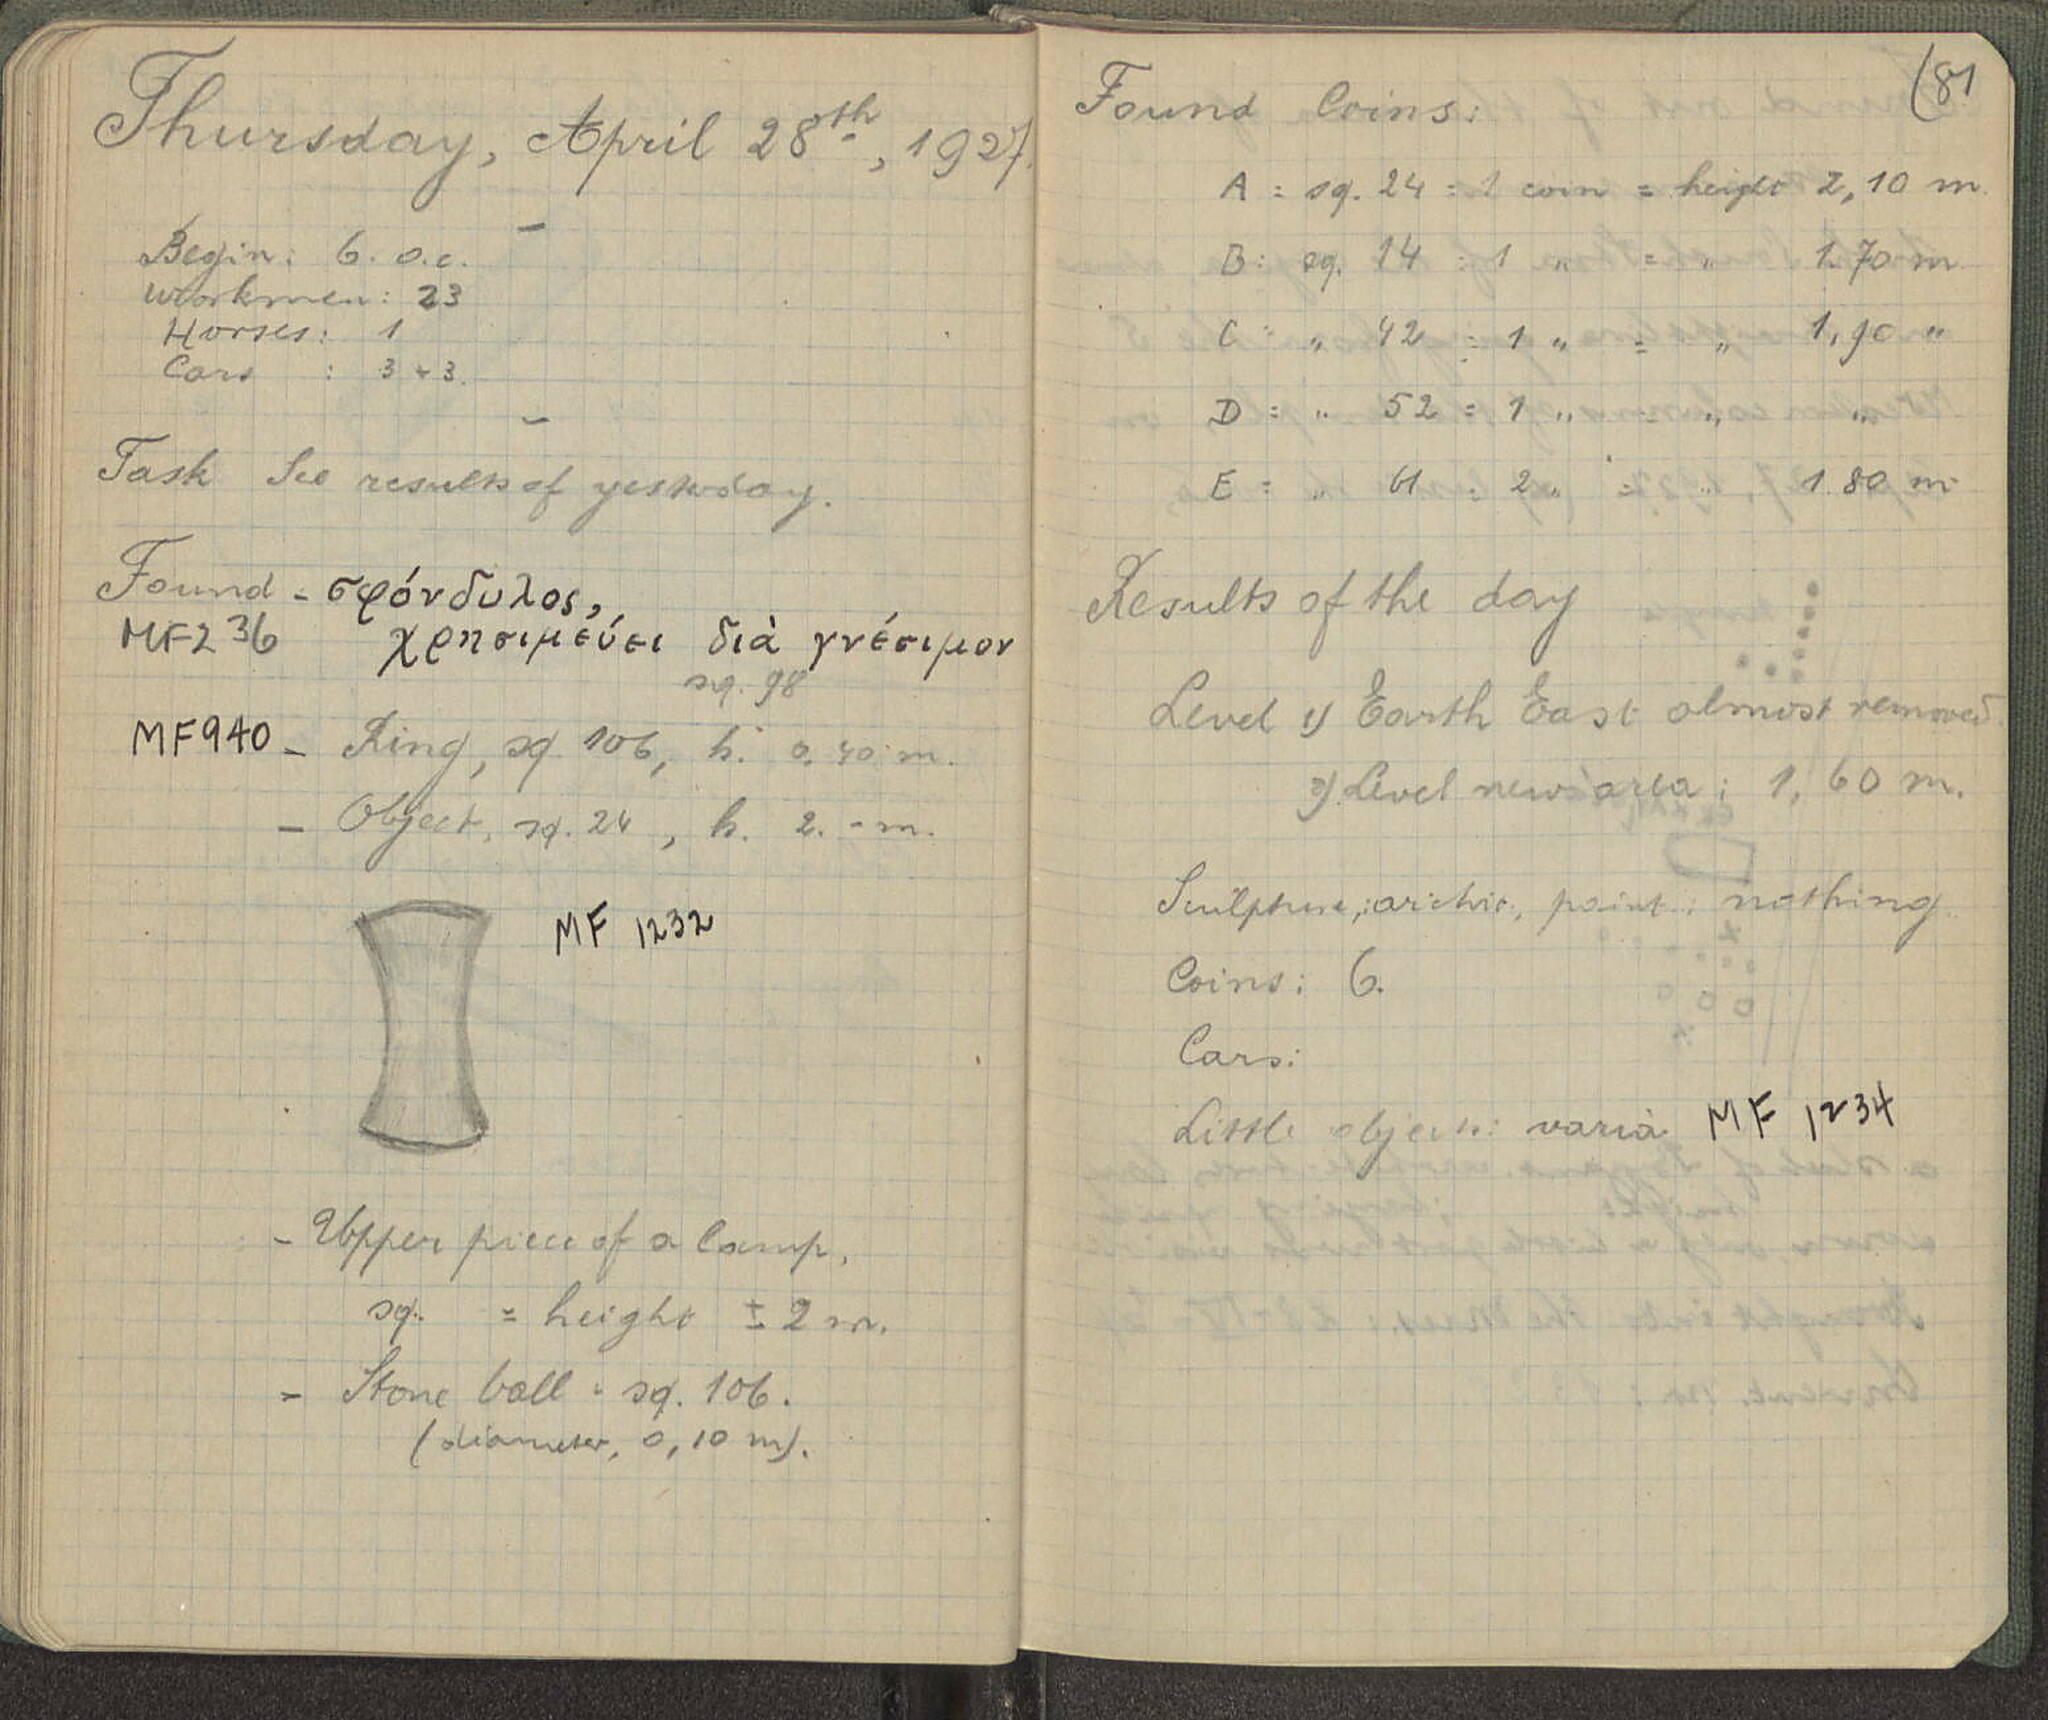 Thursday, April 28th, 1927.
Begin: 6. o.c.
Workmen: 23
Horses: 1
Cars : 3 + 3.
Task See results of yesterday.
Found - σφόνδυλος,
MF236 χρησιμεύει διὰ γνέσιμον
sq. 98
MF940 - Ring, sq. 106, h. 0,40 m.
- Object, sq. 24, h. 2.- m.
MF 1232
- Upper piece of a lamp,
sq. = height ± 2 m.
- Stone ball = sq. 106.
(diameter, 0,10 m).
(81
Found Coins:
A = sq. 24 = 1 coin = height 2,10 m.
B: sq. 14 = 1 " = " 1.70 m
C " 42 = 1 " = " 1,90 "
D = " 52 = 1 " = " "
E = " 61 = 2 " = " 1.80 m
Results of the day
Level 1) Earth East almost removed.
2) Level new area: 1,60 m.
Sculpture, archit., paint.: nothing
Coins: 6.
Cars:
Little objects: varia MF 1234